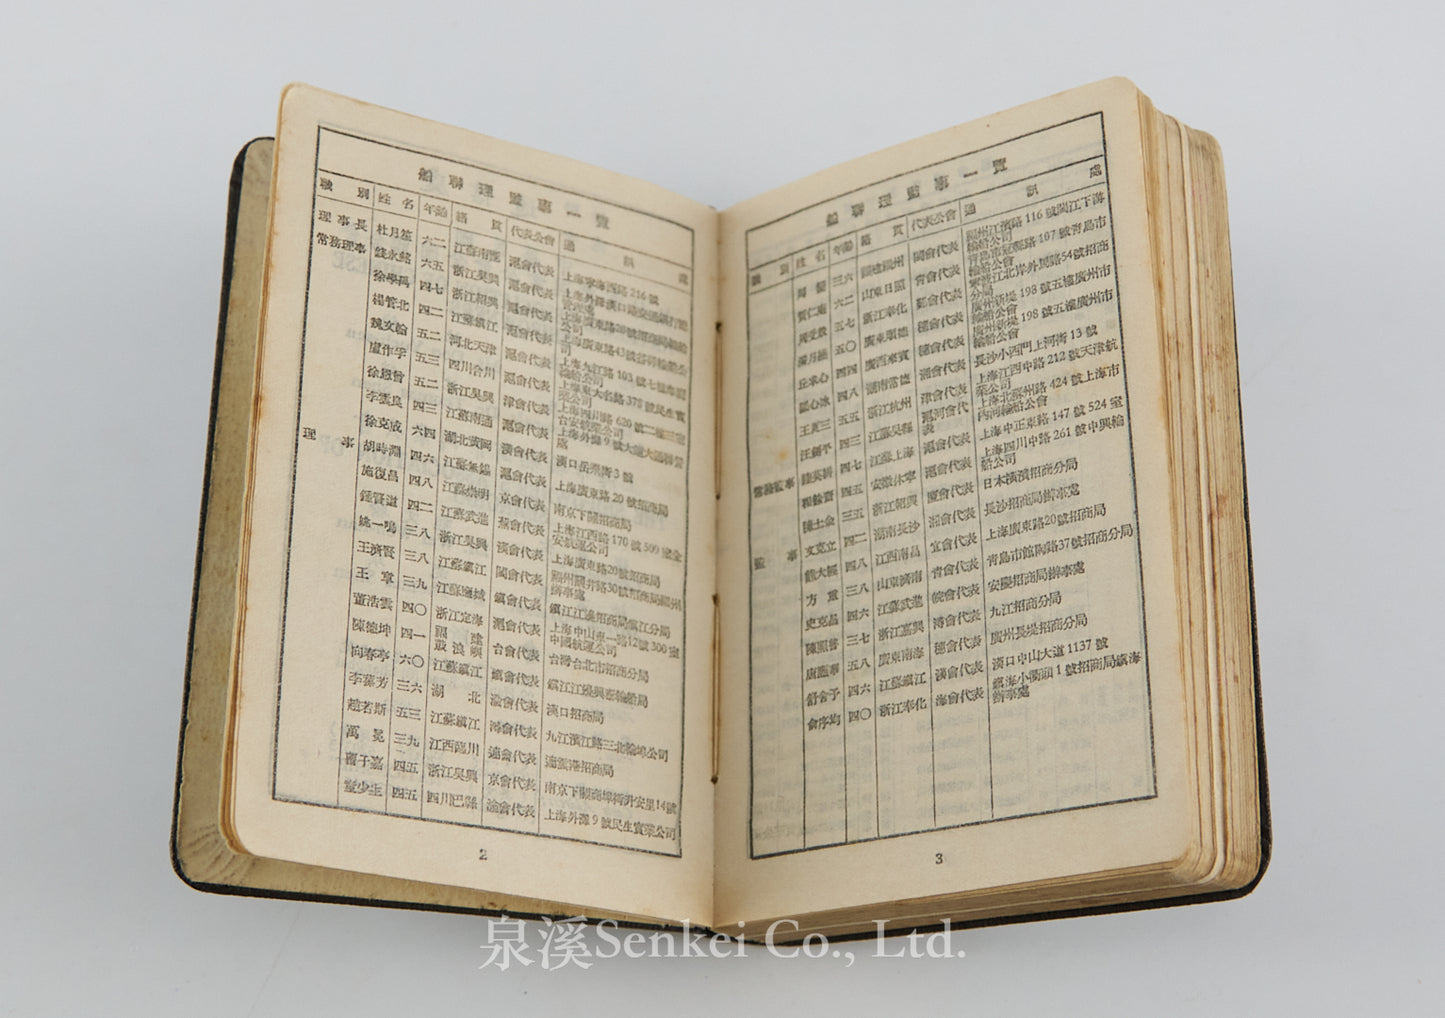 船聯理監事一覽
職別 姓名 年齡 籍貫 代表公會 通訊處
理事長 杜月笙 六二 江蘇南匯 滬會代表 上海寧海西路216號
常務理事 錢永銘 六五 浙江吳興 滬會代表
徐學禹 四七 浙江紹興 滬會代表 上海廣東路20號招商局輪船公司
楊管北 四二 江蘇鎮江 滬會代表 上海廣東路43號
魏文翰 五二 河北天津 滬會代表 上海九江路103號七樓 輪船公司
盧作孚 五三 四川合川 滬會代表 上海東大名路378號民生實業公司
徐恩曾 五二 浙江吳興 津會代表 上海四川路620號二樓 台安航業公司
李雲良 四三 江蘇南通 滬會代表 上海外灘9號
徐克成 六四 湖北黃岡 漢會代表 漢口岳飛街3號
理事 胡時淵 四六 江蘇無錫 滬會代表 上海廣東路20號招商局
施復昌 四八 江蘇崇明 京會代表 南京下關招商局
鍾賢道 四二 江蘇武進 蕪會代表 上海江西路170號509室 安航運公司
姚一鳴 三八 浙江吳興 漢會代表 上海廣東路20號招商局
王濟賢 三八 江蘇鎮江 閩會代表 福州關井路30號招商局福州辦事處
王章 三九 江蘇鹽城 鎮會代表 鎮江江邊招商局鎮江分局
董浩雲 四〇 浙江定海 滬會代表 上海中山東一路12號300室中國航運公司
陳德坤 四一 福建鼓浪嶼 台會代表 台灣台北市招商分局
向春亭 六〇 江蘇鎮江 鎮會代表 鎮江江邊興泰輪船局
李葆芳 三六 湖北 渝會代表 漢口招商局
趙若斯 五三 江蘇鎮江 潯會代表 九江濱江路三北輪埠公司
萬冕 三九 江西臨川 連會代表 招商局
蕭于嘉 四五 浙江吳興 京會代表 南京下關商埠街升安里14號
童少生 四五 四川巴縣 渝會代表 上海外灘9號民生實業公司
2
船聯理監事一覽
職別 姓名 年齡 籍貫 代表公會 通訊處
三六 福建福州 閩會代表 福州江濱路116號閩江下游輪船公司
賀仁菴 六二 山東日照 青會代表 青島市冠縣路107號青島市輪船公會
五七 浙江奉化 鄞會代表 寧波江北岸外馬路54號招商分局
五〇 廣東順德 穗會代表 廣州新堤198號五樓廣州市輪船公會
丘求心 四四 廣西來賓 穗會代表 廣州新堤198號五樓廣州市輪船公會
四八 湖南常德 湘會代表 長沙小西門上河街13號
五五 浙江杭州 津會代表 上海江西中路212號天津航業公司
汪劍平 四三 江蘇吳縣 滬河會代表 上海北蘇州路424號上海市內河輪船公會
常務監事 陸英耕 四七 江蘇上海 滬會代表 上海中正東路147號524室
程餘齋 四五 安徽休寧 滬會代表 上海四川中路261號中興輪船公司
陳士金 三五 浙江紹興 廈會代表 日本橫濱招商分局
文克立 四二 湖南長沙 湘會代表 長沙招商局辦事處
監事 熊大經 四八 江西南昌 宜會代表 上海廣東路20號招商局
方重 三八 山東濟南 青會代表 青島市館陶路37號招商分局
史克昌 四六 江蘇武進 皖會代表 安慶招商局辦事處
陳照普 三七 浙江嘉興 潯會代表 九江招商分局
唐應華 五八 廣東南海 穗會代表 廣州長堤招商分局
舒舍予 四六 江蘇鎮江 漢會代表 漢口中山大道1137號
俞序均 四〇 浙江奉化 海會代表 鎮海小衢頭1號招商局鎮海辦事處
3
泉溪Senkei Co., Ltd.